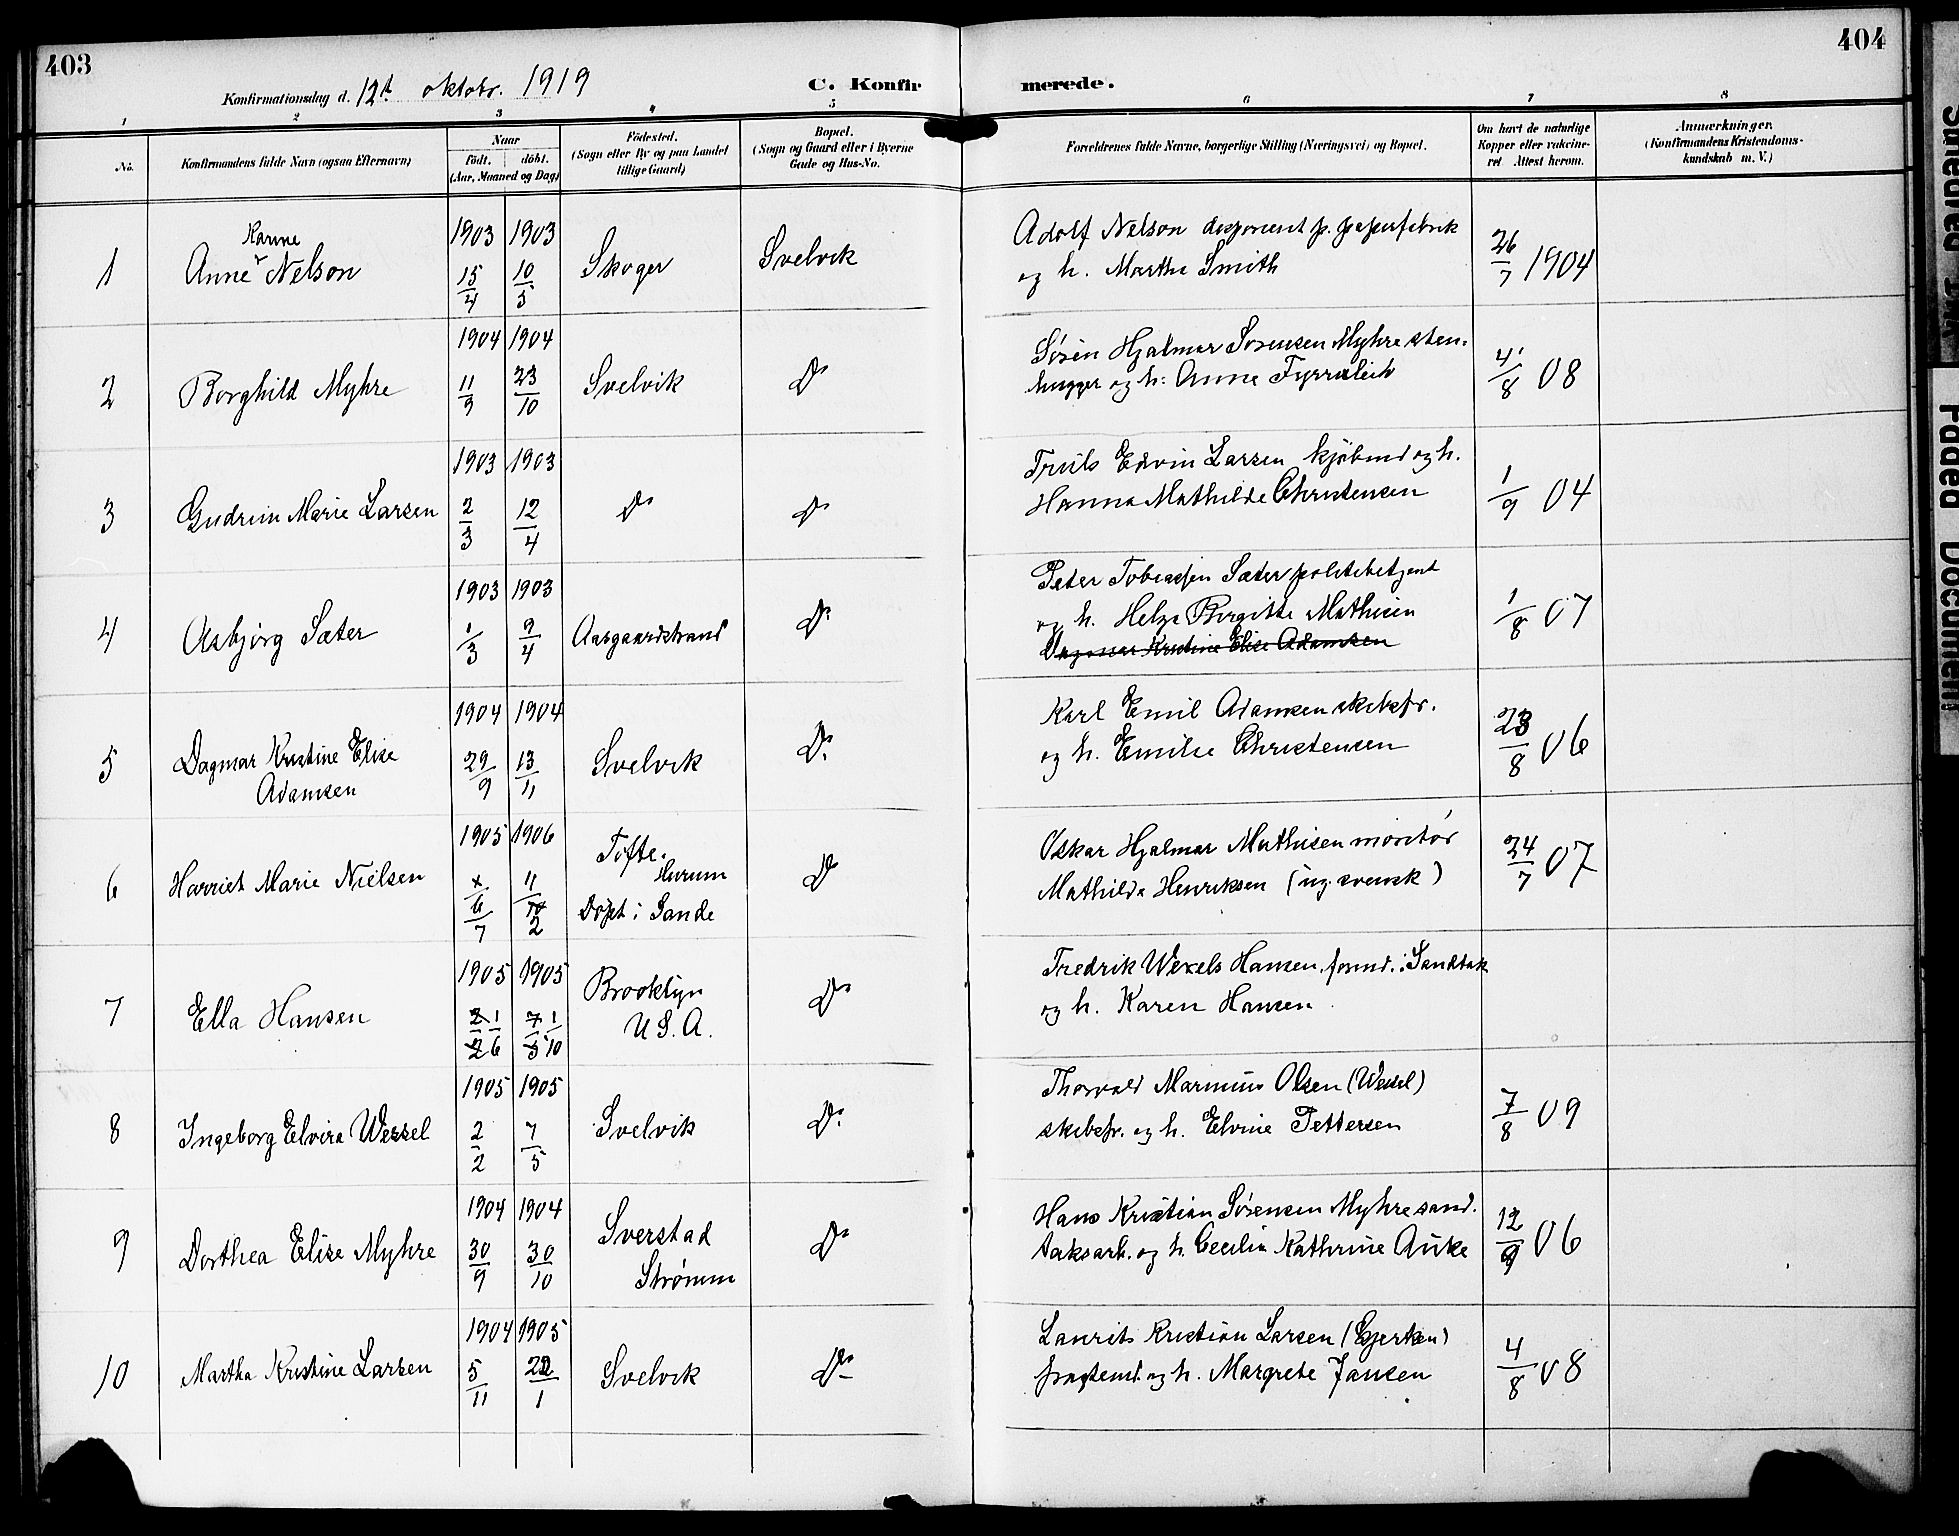 403
404
Konfirmationsdag d. 12te oktobr. 1919
C. Konfirmerede.
1 2 3 4 5 6 7 8
No.
Konfirmandens fulde Navn (ogsaa Efternavn)
Naar
født. døbt.
(Aar, Maaned og Dag)
Fødested.
(Sogn eller By og paa Landet
tillige Gaard)
Bopæl.
(Sogn og Gaard eller i Byerne
Gade og Hus-No.
Forældrenes fulde Navne, borgerlige Stilling (Næringsvei) og Bopæl.
Om havt de naturlige
Kopper eller vakcine-
ret Attest herom.
Anmærkninger.
(Konfirmandens Kristendoms-
kundskab m. V.)
1 Anne Karine Nelson 1903 15/4 1903 10/5 Skoger Svelvik
Adolf Nelson disponent p. papirfabrik
og h. Marthe Smith
26/7 1904
2 Borghild Myhre 1904 11/9 1904 23/10 Svelvik Do
Søren Hjalmar Sørensen Myhre sten-
hugger og h. Anne
4/8 08
3 Gudrun Marie Larsen 1903 2/3 1903 12/4 Do Do
Truls Edvin Larsen kjøbmd og h.
Hanna Mathilde Christensen
1/9 04
4 Asbjørg Sæter 1903 1/3 1903 9/4 Aasgaardstrand Do
Peder Tobiassen Sæter politibetjent
og h. Helga Birgitte Mathisen
Dagmar Kristine Elise Adamsen
1/8 07
5 Dagmar Kristine Elise
Adamsen 1904 29/9 1904 13/11 Svelvik Do
Karl Emil Adamsen skibsfr.
og h. Emilie Christensen
23/8 06
6 Harriet Marie Nielsen 1905 6/7 1906 11/2 Tofte.
Hurum
Døpt i Sande Do
Oskar Hjalmar Mathisen montør
Mathilde Henriksen (ug. svensk)
24/7 07
7 Ella Hansen 1905 2/2 1/6 1905 7/5 1/10 Brooklyn
U.S.A. Do
Fredrik Wexels Hansen. formd. i Sandtak
og h. Karen Hansen
8 Ingeborg Elvira Wessel 1905 2/2 1905 7/5 Svelvik Do
Thorvald Marinius Olsen (Wessel)
skibsfr. og h. Elvine Pettersen
7/8 09
9 Dorthea Elise Myhre 1904 30/9 1904 30/10 Sverstad
Strømm Do
Hans Kristian Sørensen Myhre sand.
taksarb. og h. Cecilie Kathrine Auke
12/9 06
10 Martha Kristine Larsen 1904 5/11 1905 22/1 Svelvik Do
Laurits Kristian Larsen (Gjertsen)
og h. Margrete Jansen
4/8 08